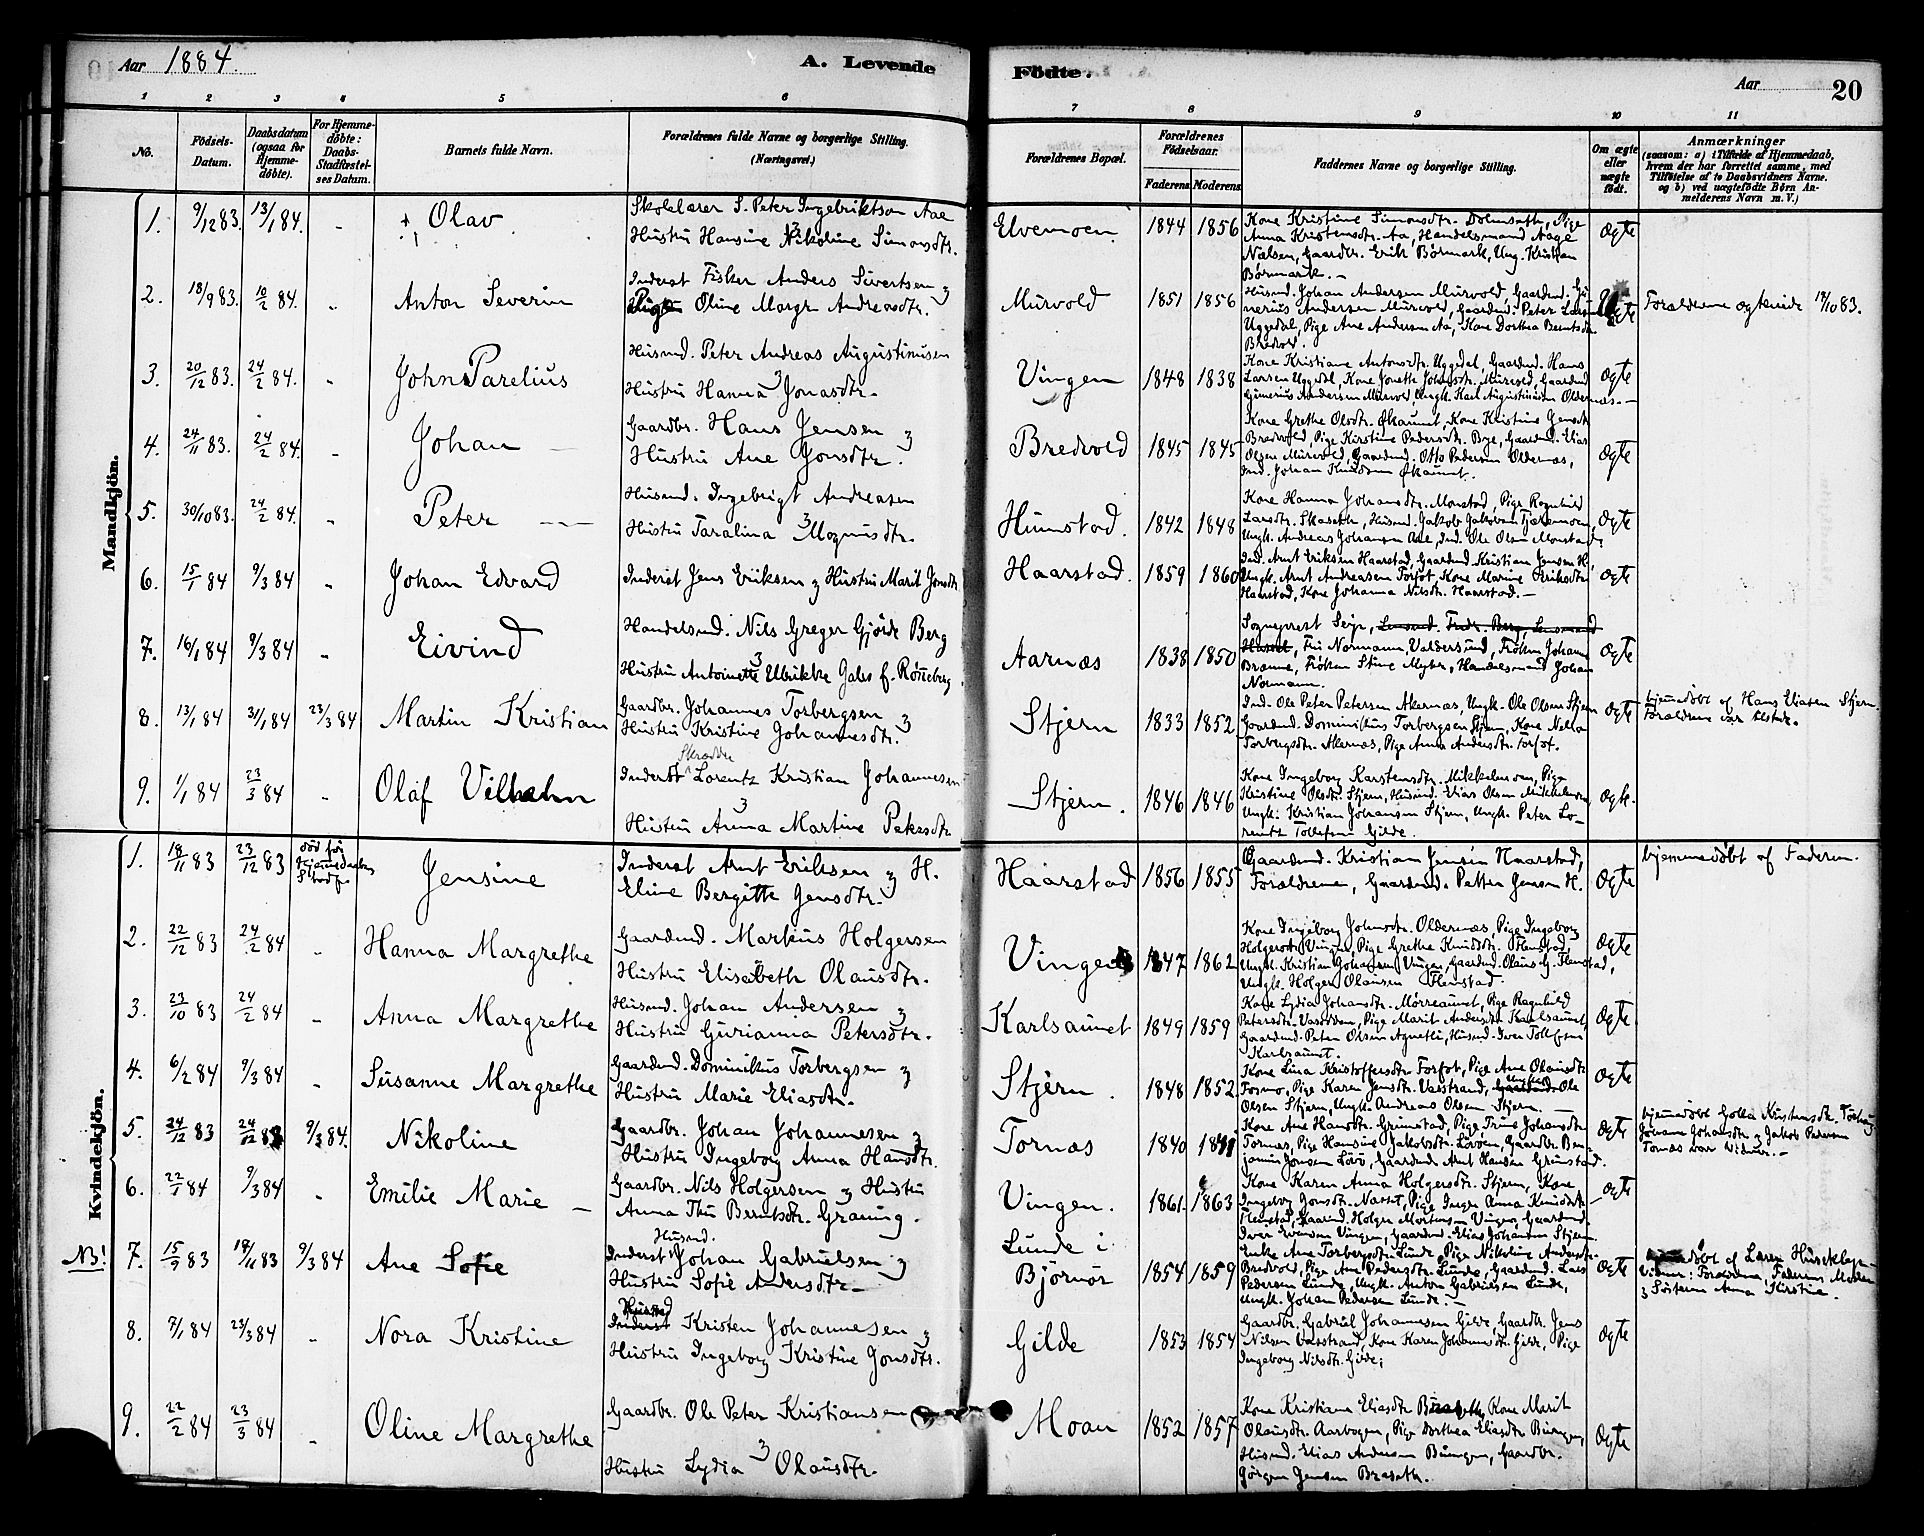 Aar 1884.
A. Levende Födte.
Aar 20
1 2 3 4 5 6 7 8 9 10 11
No.
Födsels-Datum.
Daabsdatum (ogsaa for Hjemme-döbte).
For Hjemme-döbte: Daabs-Stadfæstel-ses Datum.
Barnets fulde Navn.
Forældrenes fulde Navne og borgerlige Stilling. (Næringsvei.)
Forældrenes Bopæl.
Forældrenes Födselsaar.
Faderens Moderens
Faddernes Navne og borgerlige Stilling.
Om ægte eller uægte födt.
Anmærkninger
(saasom: a) i Tilfælde af Hjemmedaab, hvem der har forrettet samme, med Tilföielse af to Daabsvidners Navne. og b) ved uægtefödte Börn An-melderens Navn m. V.)
Mandkjön.
1. 9/12 83. 13/1 84. Olav
Skolelærer S. Peter Ingebriktson Aae
Hustru Hansine Nikoline Simonsdtr.
Elvemoen 1844 1856
Kone Kristine Simonsdtr. Dolmseth, Pige
Anna Kristensdtr. Aa, Handelsmand Aage
Nielsen, Gaardbr. Erik Børmark, Ung. Kristian
Børmark. -
Ægte
2. 18/9 83. 10/2 84. Anton Severin
Inderst Fisker Anders Sivertsen og
Pige Oline Margr. Andreasdtr.
Murvold 1851 1856
Husmd. Johan Andersen Murvold, Gaardmd. Gu-
nerius Andersen Murvold, Gaardmd. Peter Larsen
Uggedal, Pige Ane Andersen Aa, Kone Dorthea Berntsdtr.
Bredvold.
Forældrene ægteviede 18/10 83.
3. 20/12 83. 24/2 84. John Parelius
Husmd. Peter Andreas Augustinusen
Hustru Hanna Jonasdtr.
Vingen 1848 1838
Kone Kristiane Antonsdtr. Uggedal, Gaardmd. Hans
Larsen Uggdal, Kone Jonette Johansdtr. Murvold, Gaardmd.
Gunerius Andersen Murvold, Ungk. Karl Augustinusen Oldernæs. -
Ægte
4. 24/11 83. 24/2 84. Johan
Gaardbr. Hans Jensen og
Hustru Ane Jonsdtr.
Bredvold 1845 1845
Kone Grethe Olsdtr. Økaunet, Kone Kristine Jensdtr.
Bredvold, Pige Kirstine Pedersdtr. Bye, Gaardmd. Elias
Olsen Murvold, Gaardmd. Otto Pedersen Oldernæs,
Ind. Johan Knudsen Økaunet.
Ægte
5. 30/10 83. 24/2 84. Peter
Husmd. Ingebrigt Andreasen
Hustru Taralina Mogensdtr.
Humstad. 1842 1848
Kone Hanna Johansdtr. Monstad, Pige Ragnhild
Larsdtr. Skaseth, Husmd. Jakob Jakobsen Tjæremoen,
Ungk. Andreas Johansen Aae, Ind. Ole Olsen Monstad.
Ægte
6. 15/1 84 9/3 84 Johan Edvard
Inderst Jens Eriksen og Hustru Marit Jonsdtr.
Haarstad. 1859 1860
Ind. Arnt Eriksen Haarstad, Gaardmd. Kristian Jensen H.,
Ungk. Arnt Andreasen Forfot, Kone Marine Eriksdtr.
Haarstad, Kone Johanna Nilsdtr. Haarstad. -
Ægte
7. 16/1 84 9/3 84 Eivind
Handelsmd. Nils Greger Gjørde Berg
Hustru Antoinette Ulrikke Gales f. Røneberg
Aarnæs 1838 1850
Sogneprest Seip, Lensmd. Fredr. Berg, Lensmand
Fru Normann, Valdersund, Frøken Johanne
Brænne, Frøken Stine Myhre, Handelsmand Johan
Normann.
Ægte
8. 13/1 84 31/1 84 23/3 84 Martin Kristian
Gaardbr. Johannes Torbergsen og
Hustru Kristine Johannesdtr.
Stjern 1833 1852
Ind. Ole Peter Petersen Akernæs, Ungk. Ole Olsen Stjern
Gaardmd. Dominikus Torbergsen Stjern, Kone Nella
Torbergsdtr. Akernæs, Pige Anna Andersdtr. Forfot.
Ægte
hjemmedøbt af Hans Eliasen Stjern.
Forældrene var tilstede.
9. 1/1 84 23/3 84 Olaf Vilhelm
Inderst Skrædder Lorentz Kristian Johannesen
Hustru Anna Martine Petersdtr.
Stjern. 1846 1846
Kone Ingeborg Karstensdtr. Mikkelmoen, Pige
Kristine Olsdtr. Stjern, Husmd. Elias Olsen Mikkelmoen,
Ungk. Kristian Johansen Stjern, Ungk. Peter Lo-
rentz Tollefsen Gilde.
Ægte.
Kvindekjön.
1. 18/11 83 23/12 83 død før Hjemmedaaben Stadf. Jensine
Inderst Arnt Eriksen og H.
Eline Bergitte Jensdtr.
Haarstad 1856 1855
Gaardmd. Kristian Jensen Haarstad,
Forældrene, Gaardmd. Petter Jensen H.
Ægte
hjemmedøbt af Faderen.
2. 22/12 83 24/2 84 Hanna Margrethe
Gaardmd. Markus Holgersen
Hustru Elisabeth Olausdtr.
Vingen 1847 1862
Kone Ingeborg Johnsdtr. Oldernæs, Pige Ingeborg
Holgersdtr. Vingen, Pige Grethe Knudsdtr. Flenstad,
Ungk. Kristian Johansen Vingen, Gaardmd. Olaus G. Flenstad,
Ungk. Holger Olausen Flenstad.
Ægte
3. 23/10 83 24/2 84 Anna Margrethe
Husmd. Johan Andersen og
Hustru Gurianna Petersdtr.
Karlsaunet 1849 1859
Kone Lydia Johansdtr. Mørreaunet, Pige Ragnhild
Petersdtr. Vasodden, Pige Marit Andersdtr. Karlsaunet,
Gaardmd. Peter Olsen Agnetli, Husmd. Iver Tollefsen
Karlsaunet.
Ægte
4. 6/2 84 9/3 84 Susanne Margrethe
Gaardmd. Dominikus Torbergsen og
Hustru Marie Eliasdtr.
Stjern. 1848 1852
Kone Lina Kristoffersdtr. Forfot, Pige Ane Olausdtr.
Fosmo, Pige Karen Jensdtr. Varstrand, Ungkarl Ole
Olsen Stjern, Ungk. Andreas Olsen Stjern. -
Ægte
5. 24/12 83 24/12 83 9/3 84. Nikoline
Gaardbr. Johan Johannesen og
Hustru Ingeborg Anna Hansdtr.
Tornæs 1840 1841
Kone Ane Hansdtr. Grimstad, Pige Trine Johansdtr.
Tornæs, Pige Hansine Jakobsdtr. Lövöen, Gaardbr. Ben-
jamin Jonsen Lövö, Gaardmd. Arnt Hansen Grimstad.
Ægte
hjemmedøbt Golla Kristensdtr.
Johanne Johansdtr. og Jakob Pedersen
Tornæs var Vidner. -
6. 22/1 84 9/3 84 Emilie Marie
Gaardbr. Nils Holgersen og Hustru
Anna Thea Berntsdtr. Graning.
Vingen. 1861 1863
Kone Karen Anna Holgersdtr. Stjern, Kone
Ingeborg Jonsdtr. Næsset, Pige Inger Anna Knudsdtr.
Flenstad, Gaardmd. Holger Mortensen Vingen, Gaardmd.
Iver Evensen Vingen, Gaardmd. Elias Johansen Stjern.
Ægte
NB! 7. 15/9 83 18/11 83 9/3 84 Ane Sofie
Inderst Husmd. Johan Gabrielsen og
Hustru Sofie Andersdtr.
Lunde i
Bjørnør 1854 1859
Enke Ane Torbergsdtr. Lunde, Pige Nikoline Andersdtr.
Bredvold, Pige Ane Pedersdtr. Lunde, Gaardmd. Lars
Pedersen Lunde, Ungk. Anton Gabrielsen Lunde,
Ungk. Johan Pedersen Lunde. -
Ægte
døbt af Lærer Huseklepp
Vidner: Forældrene, Faderens Moder
og Søsteren Anna Kirstine.
8. 7/1 84 23/3 84 Nora Kristine
Husmd Inderst Kristen Johannesen og
Hustru Ingeborg Kristine Jonsdtr.
Gilde 1853 1854
Gaardbr. Gabriel Johannesen Gilde, Gaardbr. Jens
Nilsen Varstrand, Kone Karen Johannesdtr. Gilde, Pige
Ingeborg Nilsdtr. Gilde;
Ægte
9. 22/2 84 23/3 84 Oline Margrethe
Gaardbr. Ole Peter Kristiansen og
Hustru Lydia Olausdtr.
Moan 1852 1857
Kone Kristiane Eliasdtr. Braseth, Kone Marit
Olausdtr. Aarbogen, Pige Dorthea Eliasdtr. Buingen,
Husmd. Elias Andersen Buingen, Gaardbr.
Jørgen Jensen Braseth.
Ægte